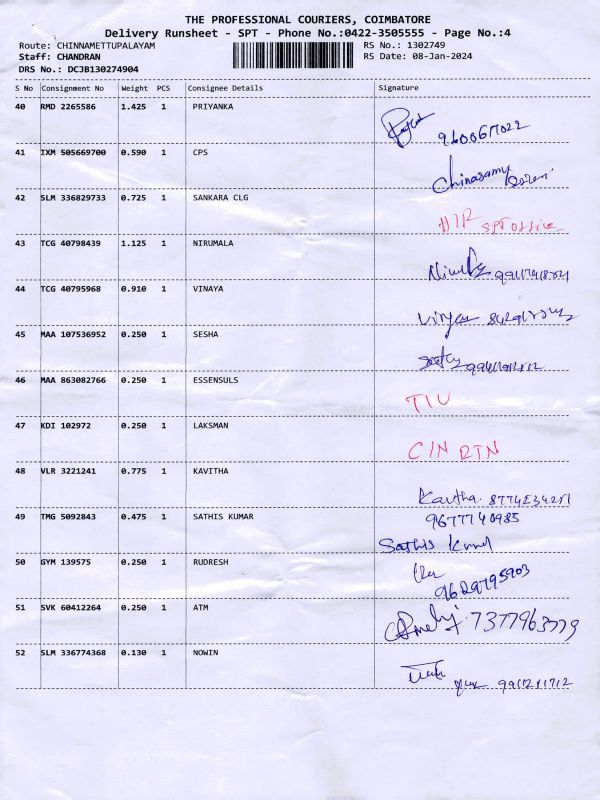 THE PROFESSIONAL COURIERS, COIMBATORE
Delivery Runsheet - SPT - Phone No.:0422-3505555 - Page No.:4
Route: CHINNAMETTUPALAYAM RS No.: 1302749
Staff: CHANDRAN RS Date: 08-Jan-2024
DRS No.: DCJB130274904
S No Consignment No Weight PCS Consignee Details Signature
40 RMD 2265586 1.425 1 PRIYANKA
41 IXM 505669700 0.590 1 CPS
Chinasamy
42 SLM 336829733 0.725 1 SANKARA CLG
SPT office
43 TCG 40798439 1.125 1 NIRUMALA
44 TCG 40795968 0.910 1 VINAYA
45 MAA 107536952 0.250 1 SESHA
46 MAA 863082766 0.250 1 ESSENSULS
TIU
47 KDI 102972 0.250 1 LAKSMAN
C/N RTN
48 VLR 3221241 0.775 1 KAVITHA
Kavtha
49 TMG 5092843 0.475 1 SATHIS KUMAR
9677740985
Sathis
50 GYM 139575 0.250 1 RUDRESH
9629795903
51 SVK 60412264 0.250 1 ATM
7377963779
52 SLM 336774368 0.130 1 NOWIN